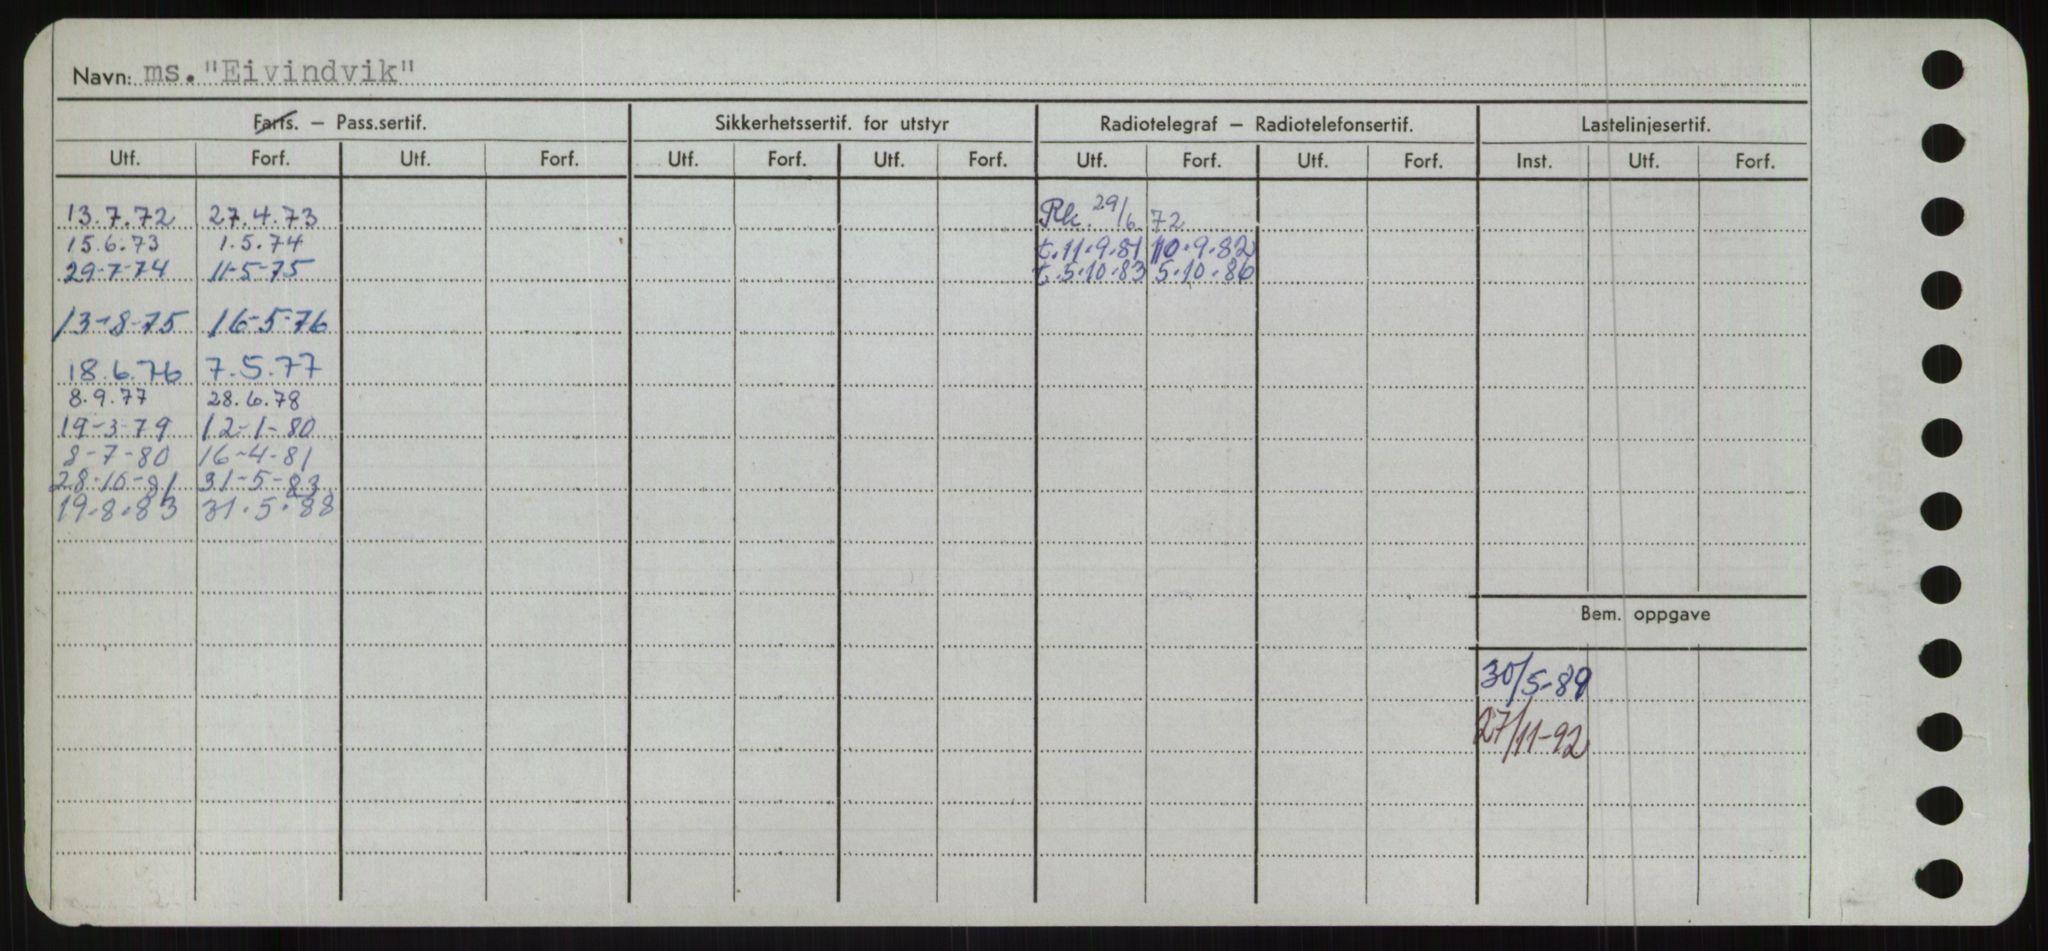 Navn: ms. "Eivindvik"
Farts. – Pass.sertif. Sikkerhetssertif. for utstyr Radiotelegraf – Radiotelefonsertif. Lastelinjesertif.
Utf. Forf. Utf. Forf. Utf. Forf. Utf. Forf. Utf. Forf. Utf. Forf. Inst. Utf. Forf.
13.7.72 27.4.73 Rk. 29/6 72
15.6.73 1.5.74 t.11.9.81 10.9.82
29-7-74 11-5-75 t.5.10.83 5.10.86
13-8-75 16-5-76
18.6.76 7.5.77
8.9.77 28.6.78
19-3-79 12-1-80
8-7-80 16-4-81
28-10-81 31-5-83
19.8.83 31.5.88
Bem. oppgave
30/5-89
27/11-92